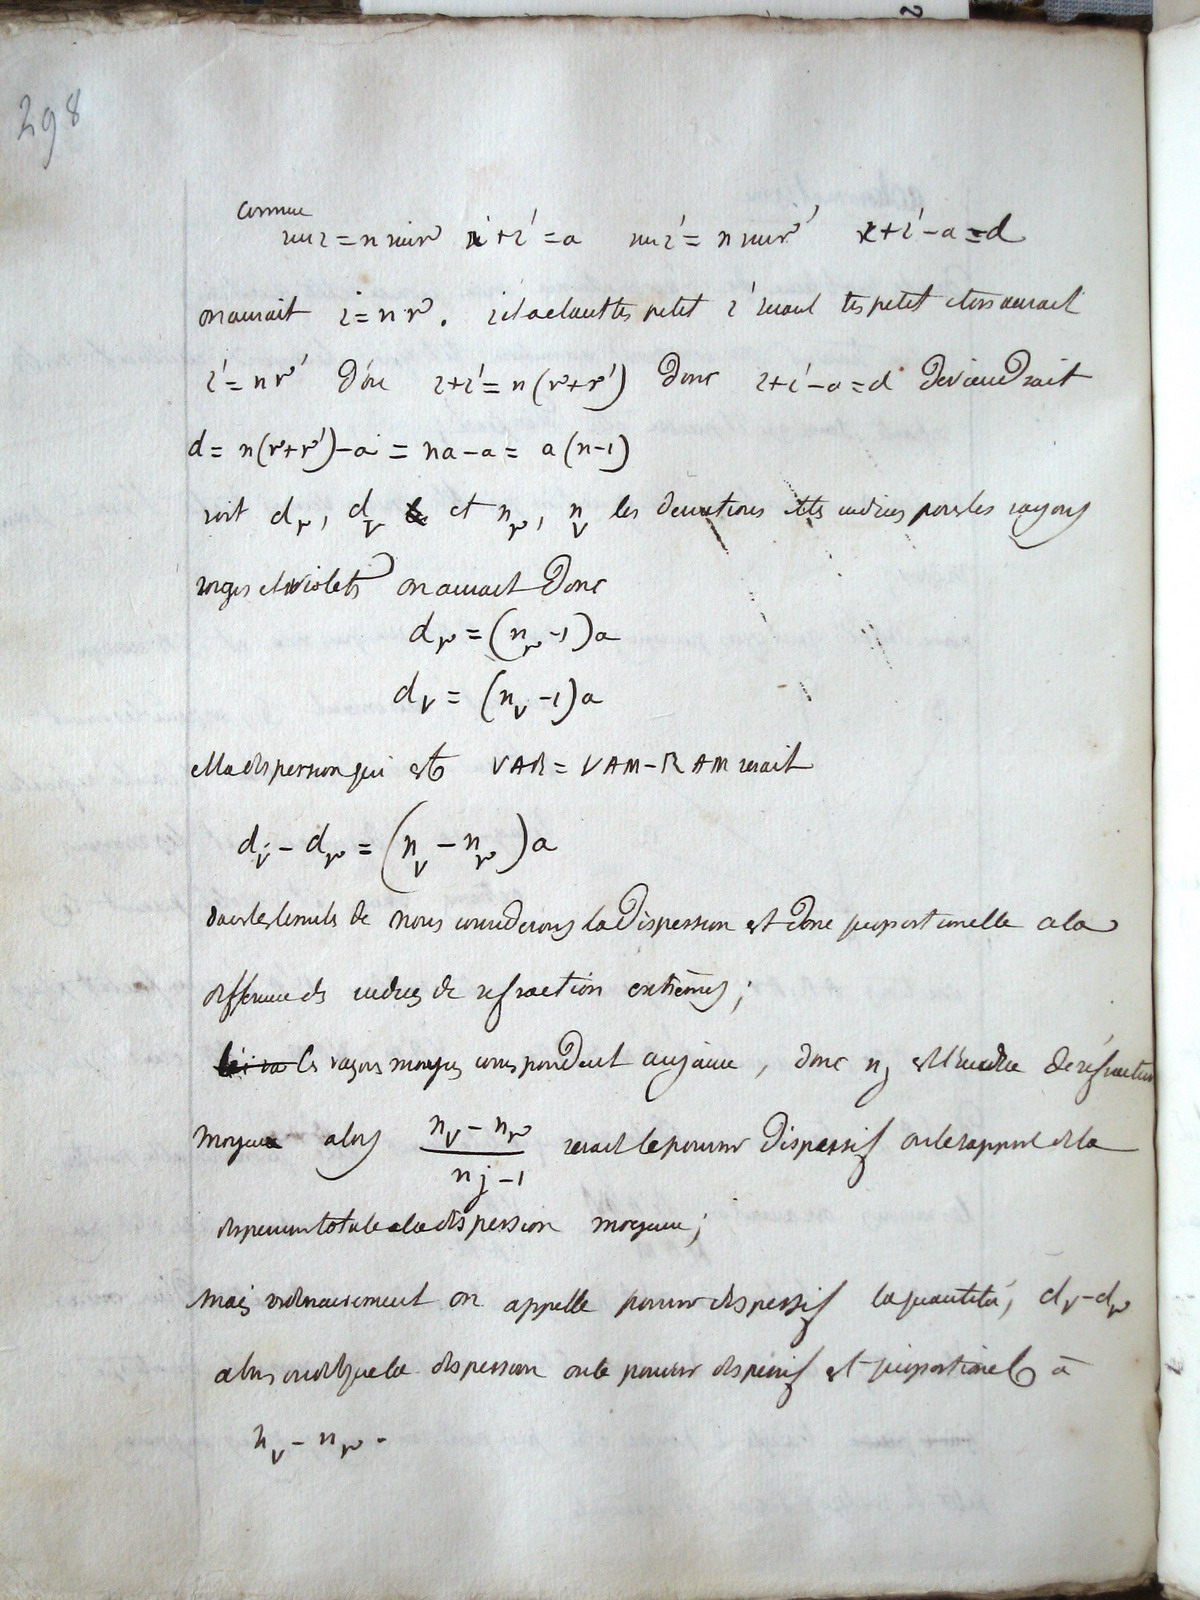 298
comme
sin i = n sin r r + r' = a sin i' = n sin r' i + i' - a = d
on aurait i = n r . i et a etant tres petit i' serait tres petit et on aurait
i' = n r' d'ou i + i' = n (r + r') donc i + i' - a = d deviendrait
d = n (r + r') - a = na - a = a (n - 1)
soit d_r, d_v et n_r, n_v les deviations et les indices pour les rayons
rouges et violets on aurait donc
d_r = (n_r - 1) a
d_v = (n_v - 1) a
et la dispersion qui est VAR = VAM - RAM serait
d_v - d_r = (n_v - n_r) a
dans les limites de nous considerons la dispersion est donc proportionelle a la
difference des indices de refraction extrêmes ;
les rayons moyens correspondent au jaune , donc n_j est l'indice de réfraction
moyenne alors (n_v - n_r) / (n_j - 1) serait le pouvoir dispersif ou le rapport de la
dispersion totale a la dispersion moyenne ;
mais ordinairement on appelle pouvoir dispersif la quantité, d_v - d_r
alors on dit que la dispersion ou le pouvoir dispersif est proportionel à
n_v - n_r .